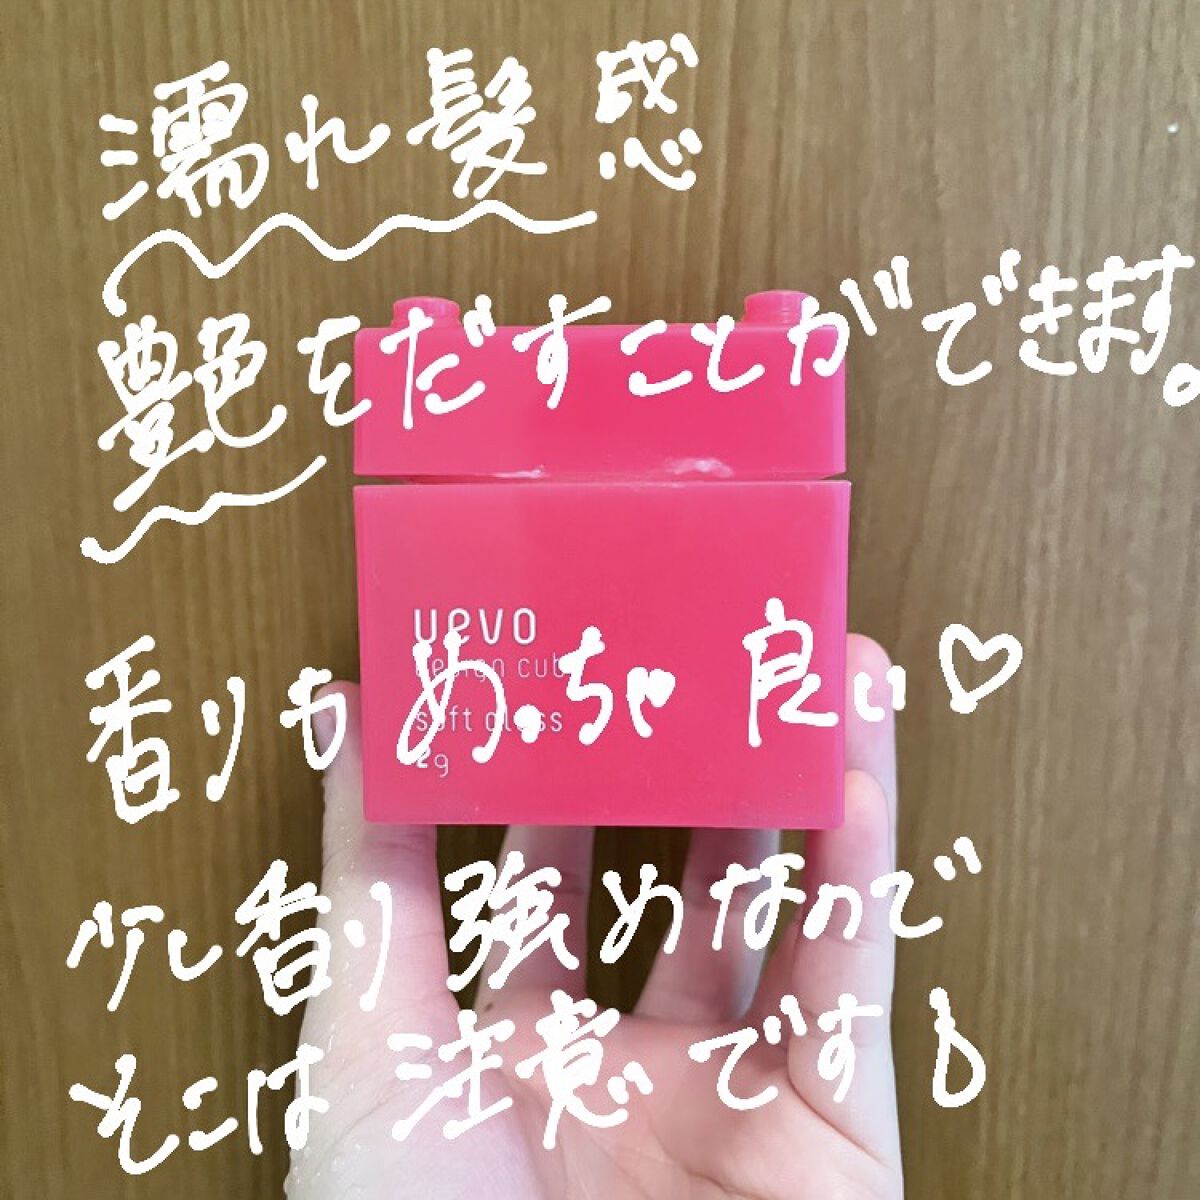 濡れ髪感
艶をだすことができます。
uevo
design cub
soft gloss
2g
香りもめっちゃ良い♡
少し香り強めなので
そこは注意です